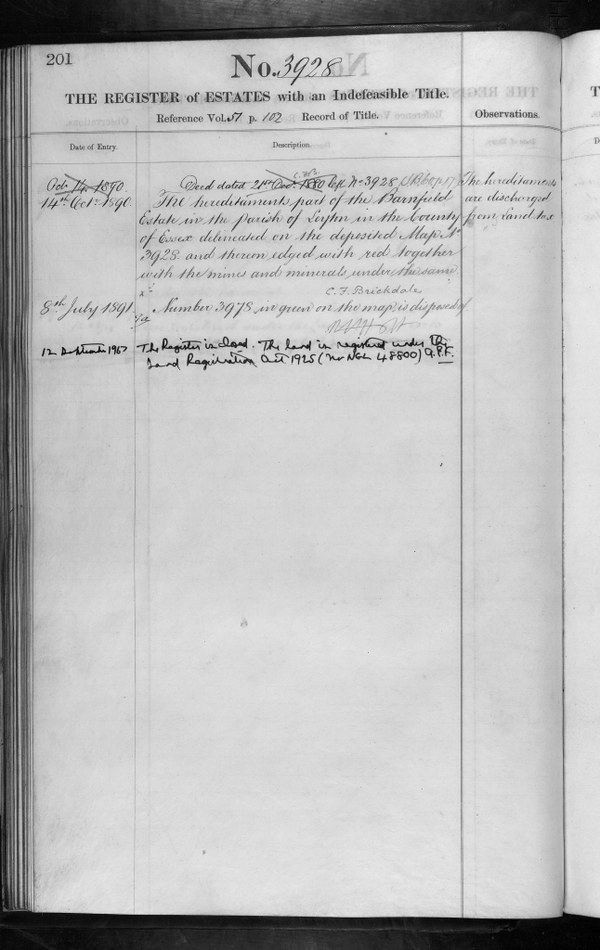 201
No. 3928
THE REGISTER of ESTATES with an Indefeasible Title.
Reference Vol. 51 p. 102 Record of Title.
Observations.
Date of Entry.
Description.
Oct. 14. 1890.
Deed dated 21st Oct. 1880 No 3928
14th Oct. 1890
The hereditaments part of the Barnfield
Estate in the Parish of Leyton in the County
of Essex delineated on the deposited Map No
3928 and thereon edged with red together
with the mines and minerals under the same
C. F. Brickdale
The hereditaments
are discharged
from Land tax
8th July 1891
Number 3978, in green on the map, is disposed of
12 1967
The Register is closed. The land is registered under the
Land Registration Act 1925 (No NGL 48800)